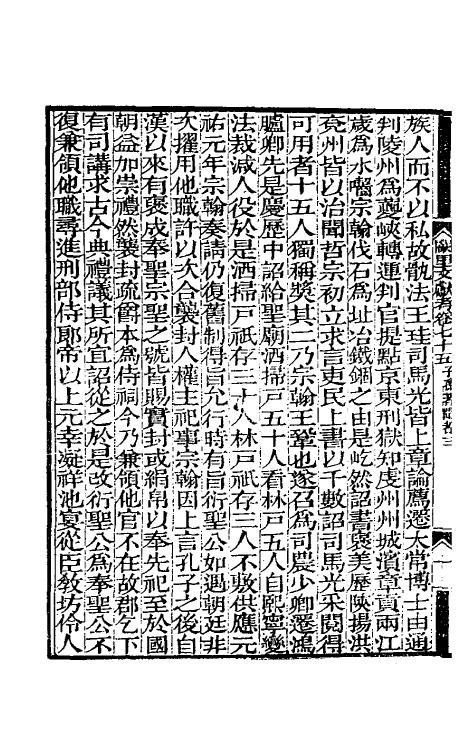 闕里文獻考卷七十五 子孫著聞者三
族人而不以私故骫法王珪司馬光皆上章論薦遷太常博士由通
判陵州為夔峽轉運判官提點京東刑獄知虔州州城濱章貢兩江
歲為水齧宗翰伐石為址冶鐵錮之由是屹然詔書褒美歷陝揚洪
兗州皆以治聞哲宗初立求言吏民上書以千數詔司馬光采閱得
可用者十五人獨稱奬其二乃宗翰王鞏也遂召為司農少卿遷鴻
臚卿先是慶歷中詔給聖廟洒掃戶五十人看林戶五人自熙寧變
法裁減人役於是洒掃戶祇存三十人林戶祇存三人不敷供應元
祐元年宗翰奏請仍復舊制得旨允行時有旨衍聖公如遇朝廷非
次擢用他職許以次合襲封人權主祀事宗翰因上言孔子之後自
漢以來有褒成奉聖宗聖之號皆賜實封或縑帛以奉先祀至於國
朝益加崇禮然襲封疏爵本為侍祠今乃兼領他官不在故郡乞下
有司講求古今典禮議其所宜詔從之於是改衍聖公為奉聖公不
復兼領他職尋進刑部侍郎帝以上元幸凝祥池宴從臣教坊伶人